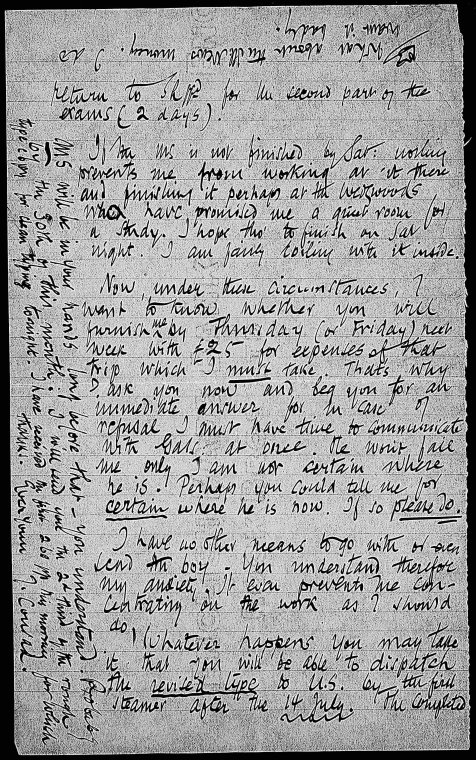 return to Shppd for the second part of the
exams (2 days).
If the MS is not finished by Sat: nothing
prevents me from working at it there
and finishing it perhaps at the Wedgwoods
who have promised me a quiet room for
a study. I hope tho' to finish on Sat
night. I am fairly toiling with it inside.
Now, under these circumstances, I
want to know whether you will
furnish me by Thursday (or Friday) next
week with £25 for expenses of that
trip which I must take. Thats why
I ask you now and beg you for an
immediate answer for in case of
refusal I must have time to communicate
with Gals: at once. He wont fail
me only I am not certain where
he is. Perhaps you could tell me for
certain where he is now. If so please do.
I have no other means to go with or even
send the boy – You understand therefore
my anxiety. It even prevents me con-
centrating on the work as I should
do.
Whatever happens you may take
it that you will be able to dispatch
the revised type to U.S. by the first
steamer after the 14 July. The completed
MS will be in your hands long before that – you understand. Probably
by the 30th of this month. I will send you the 2d third of the rough
type copy for clean typing tonight. I have received the other 260 pp this morning for which
thanks. Ever yours J. Conrad.
What about the money. I do
want it badly.